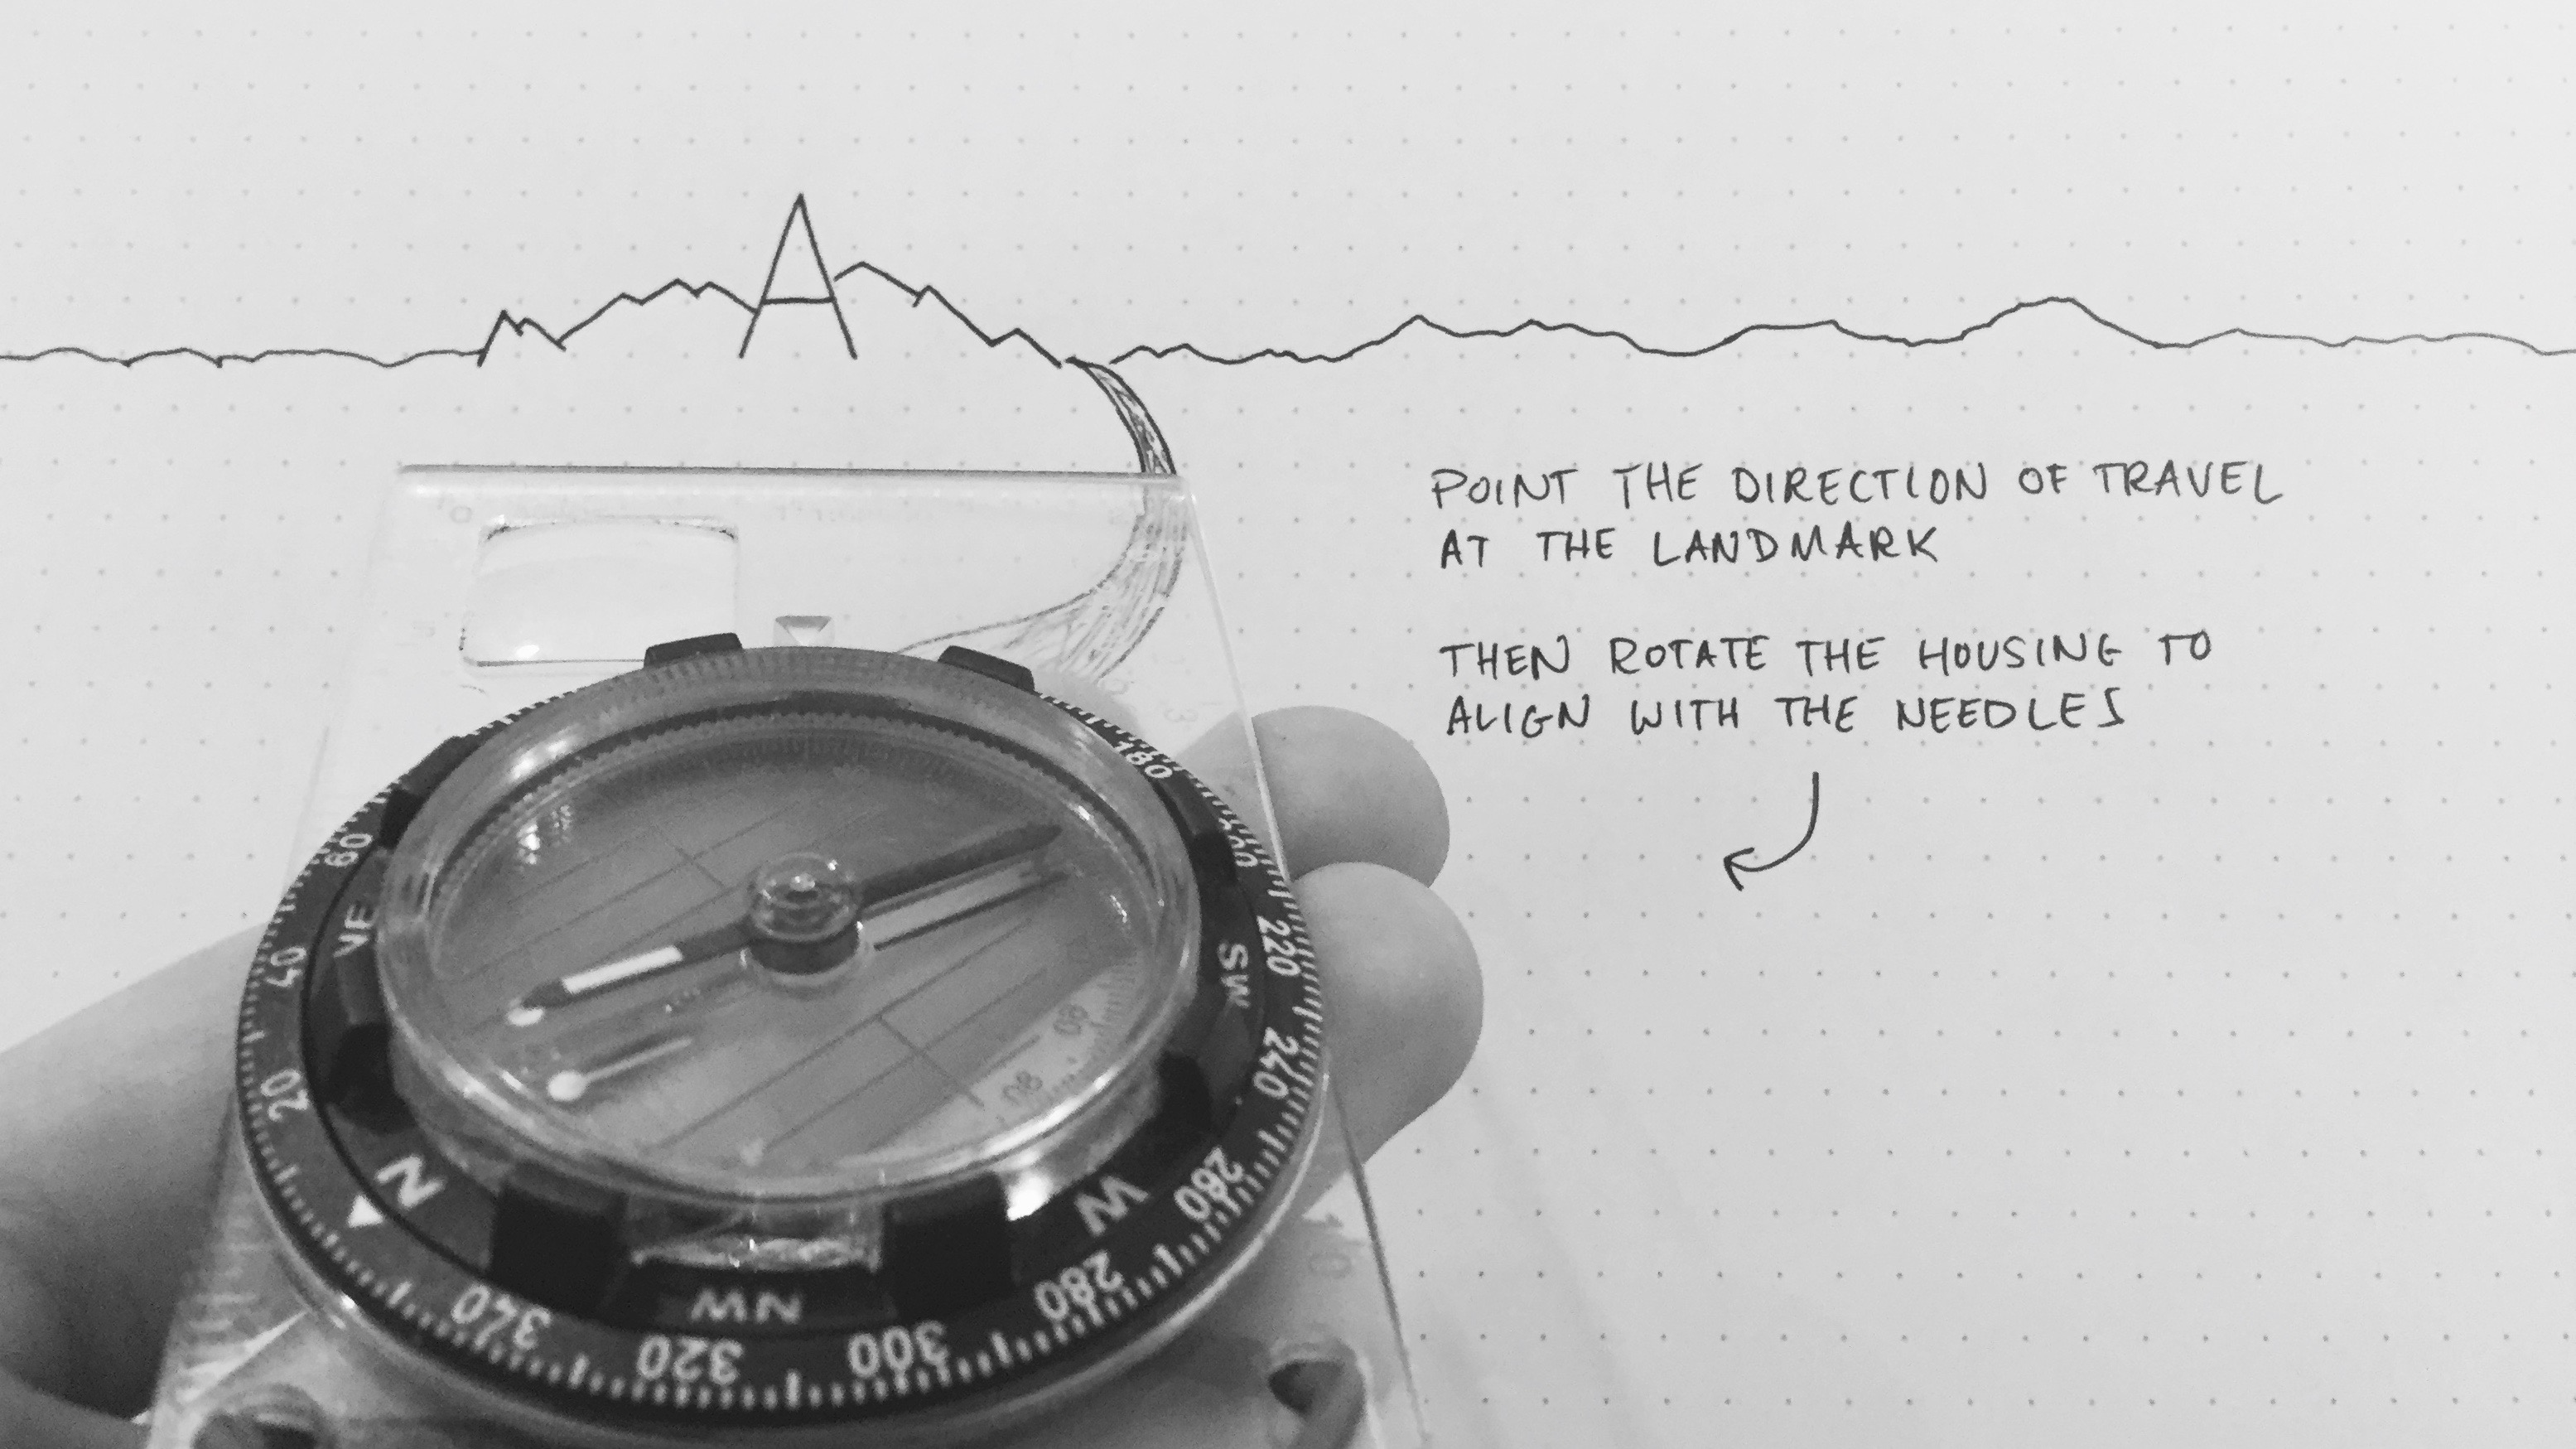 A
POINT THE DIRECTION OF TRAVEL
AT THE LANDMARK
THEN ROTATE THE HOUSING TO
ALIGN WITH THE NEEDLES
180
200
60
NE
220
SW
40
240
20
80
60
N
260
W
280
10
NW
340
320
300